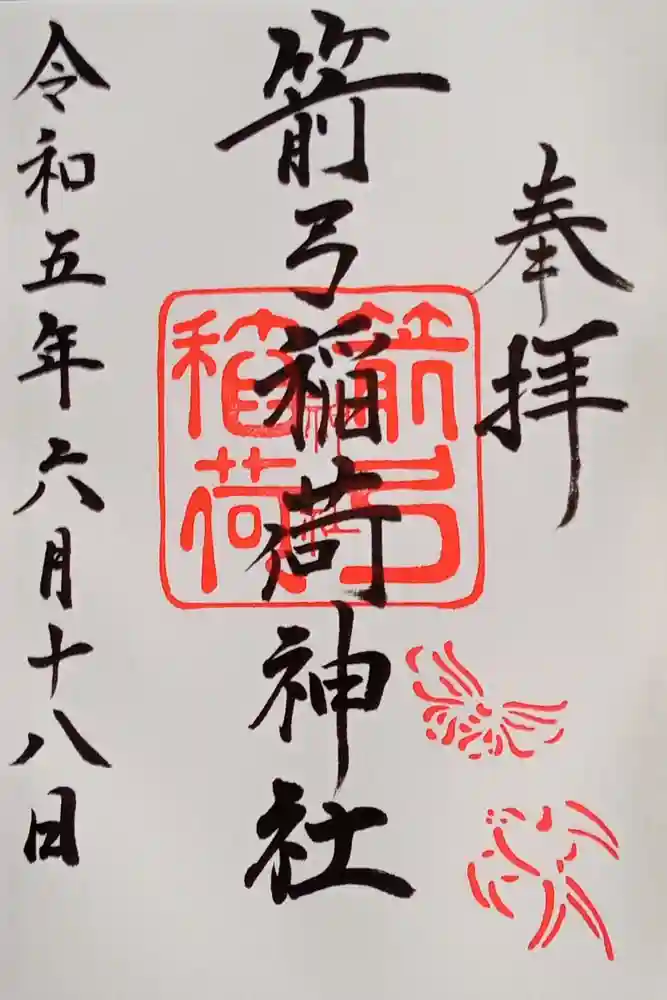 奉拝
箭弓稲荷神社
箭弓稲荷神社
令和五年六月十八日